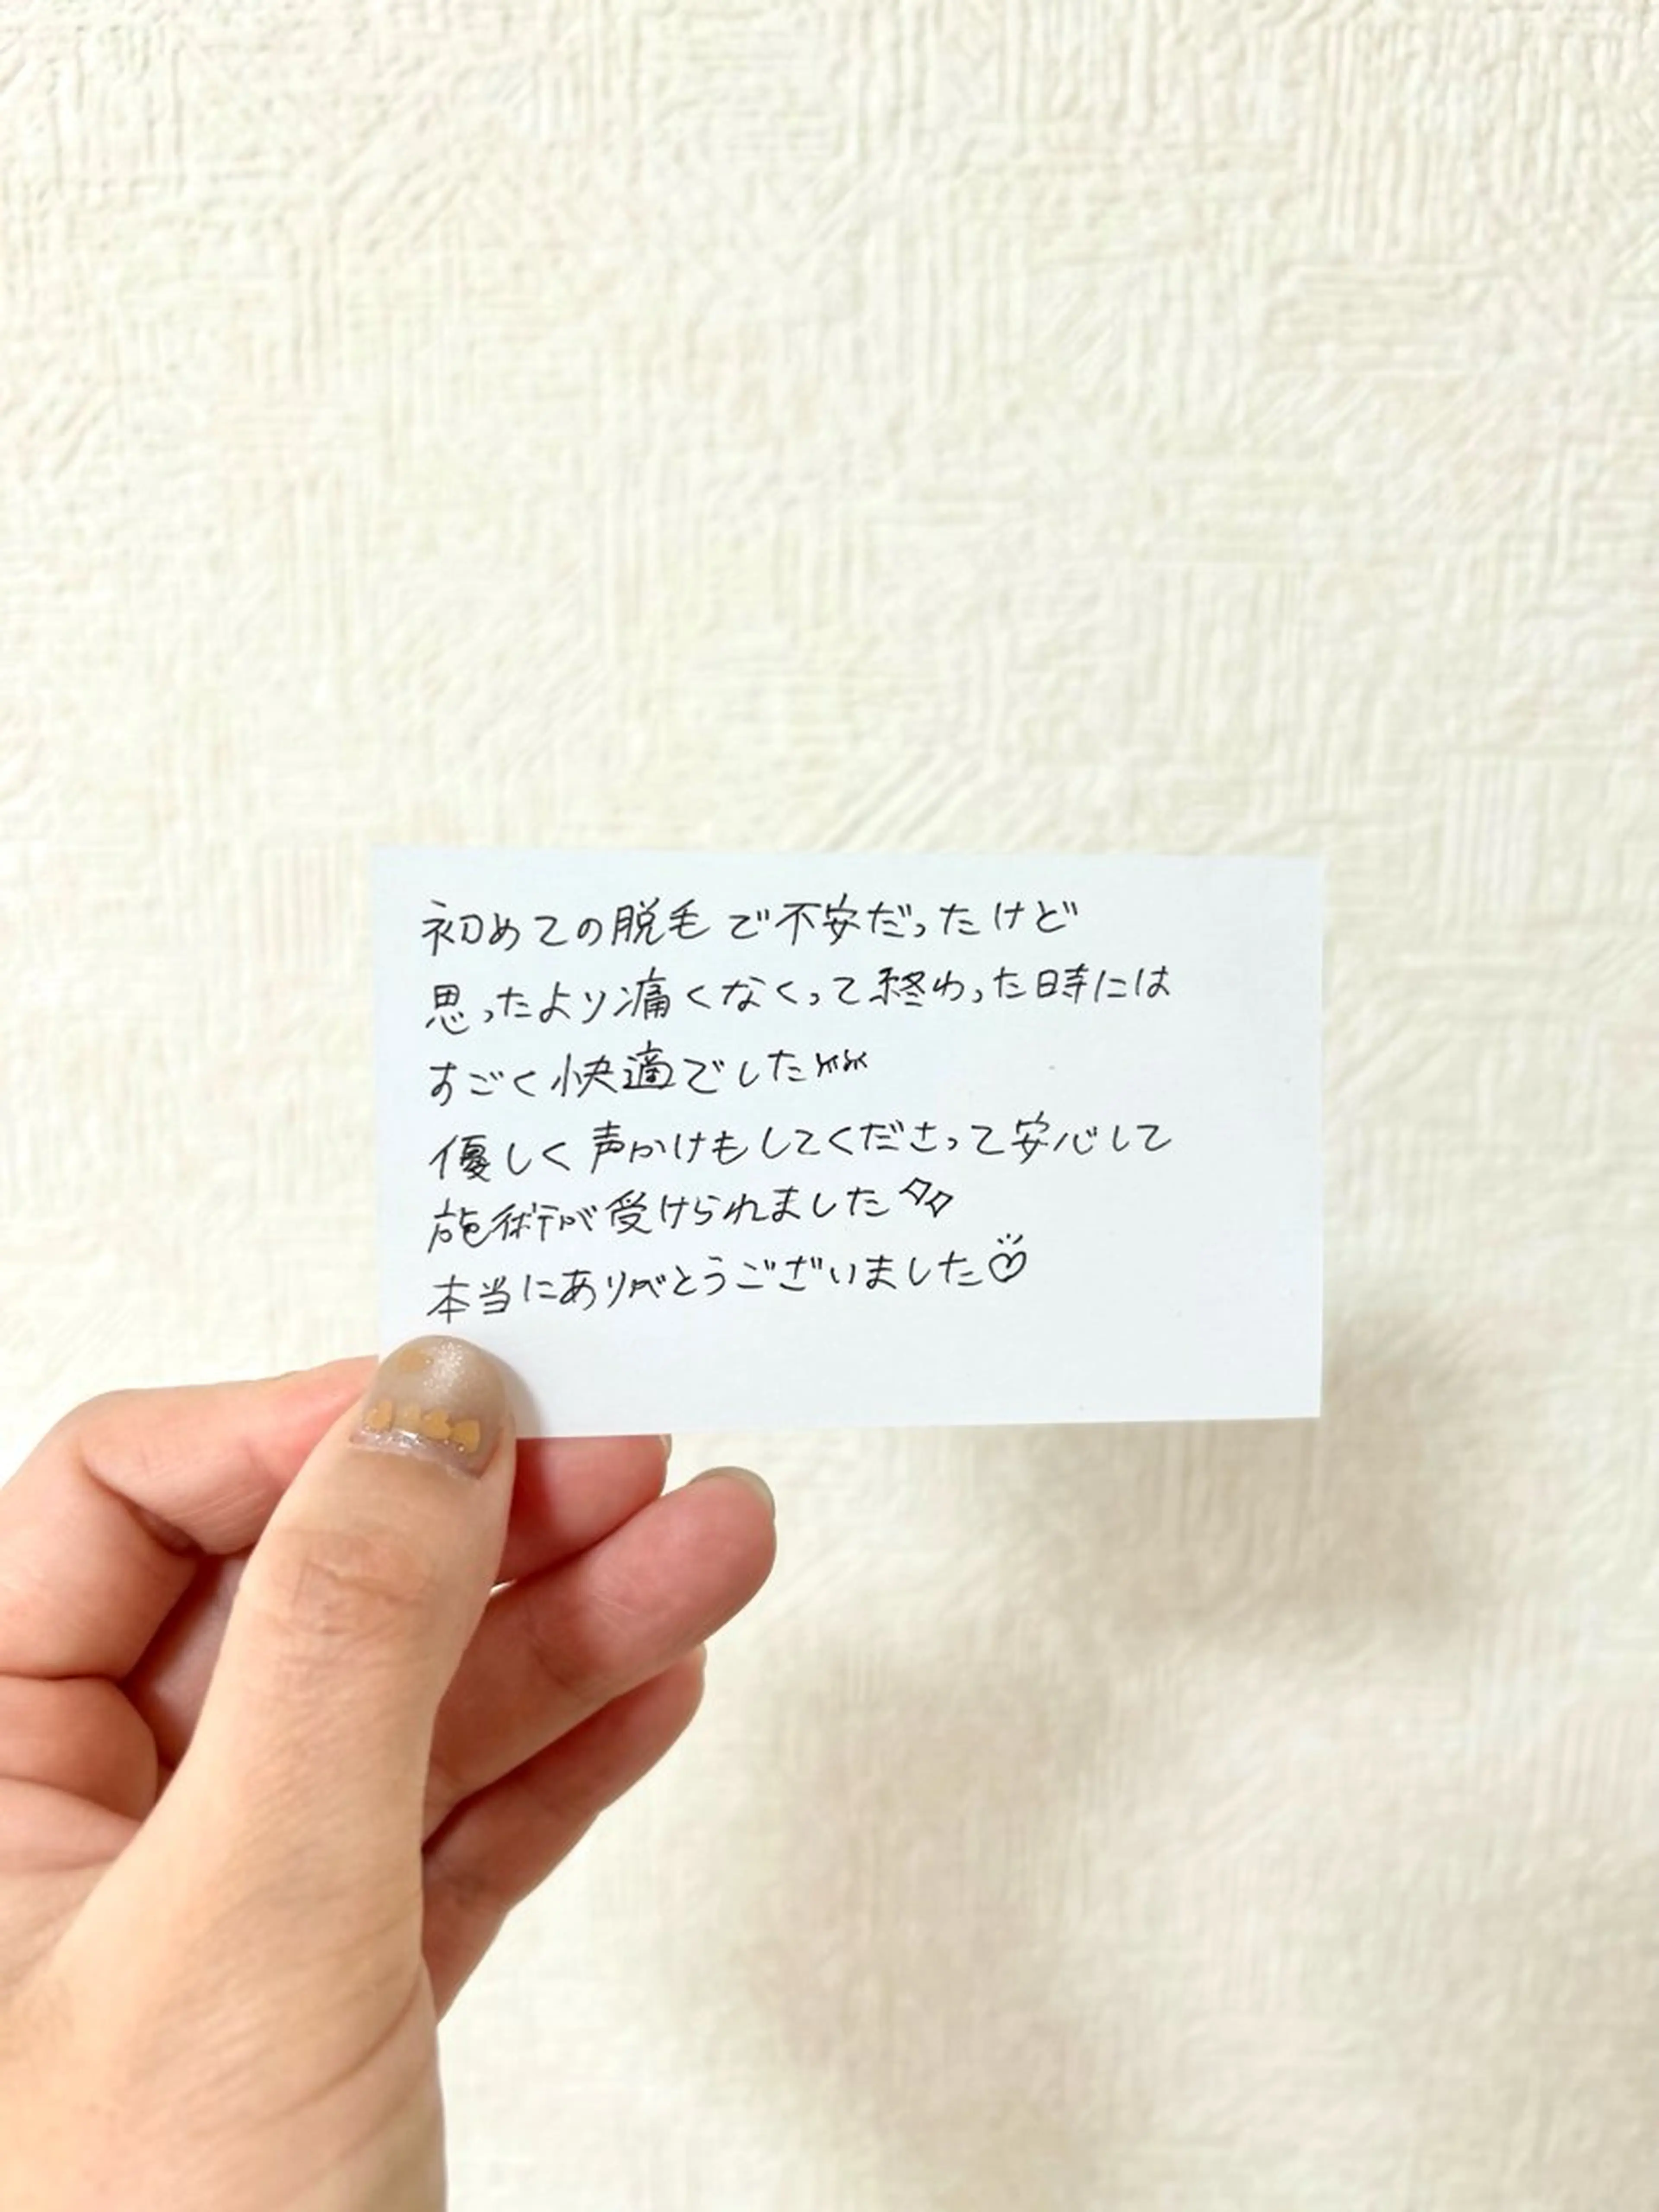 初めての脱毛で不安だったけど
思ったより痛くなくって終わった時には
すごく快適でした
優しく声かけもしてくださって安心して
施術が受けられました
本当にありがとうございました♡